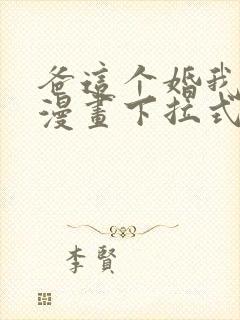 爸這个婚我
漫畫下拉式
李賢